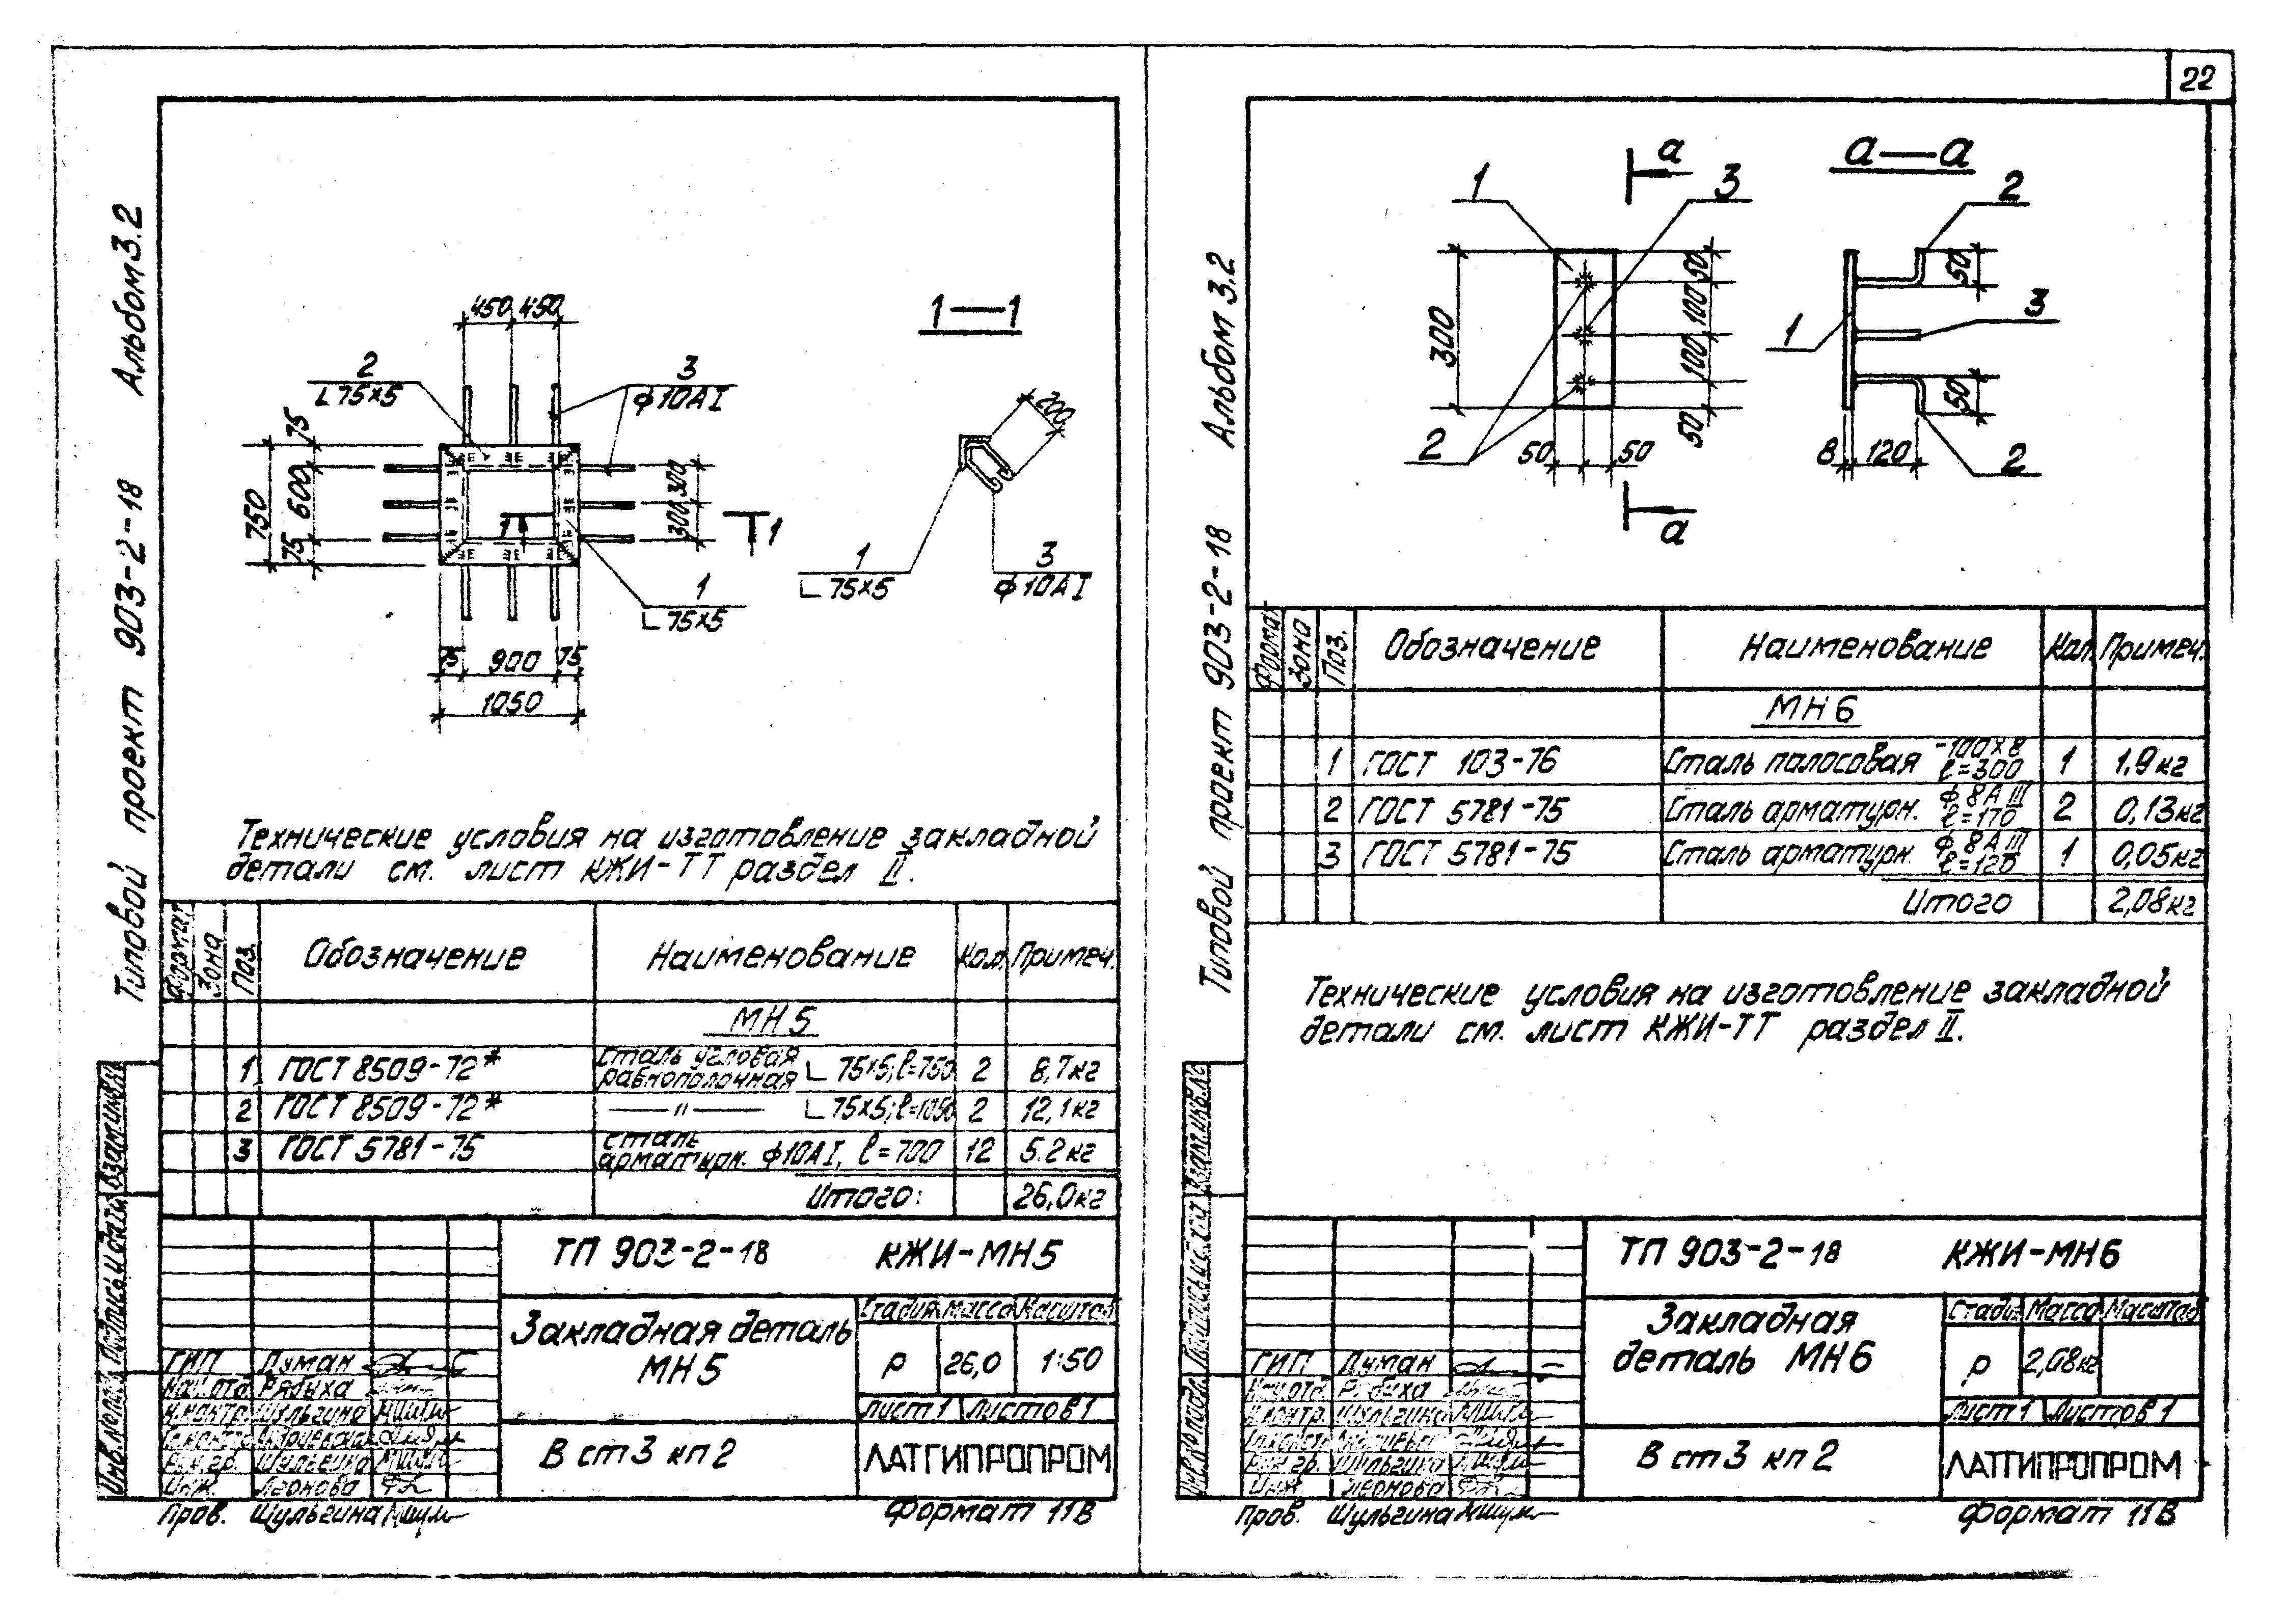 22
Альбом 3.2
Типовой проект 903-2-18
450 450
2
∟75×5
3
ф10АI
75
600
750
75
300
300
1
1
1
∟75×5
75 900 75
1050
1—1
200
1
∟75×5
3
ф10АI
Технические условия на изготовление закладной
детали см. лист КЖИ-ТТ раздел II.
Формат Зона Поз. Обозначение Наименование Кол. Примеч.
МН5
1 ГОСТ 8509-72* Сталь угловая равнополочная ∟75×5; ℓ=750 2 8,7кг
2 ГОСТ 8509-72* —"— ∟75×5; ℓ=1050 2 12,1кг
3 ГОСТ 5781-75 Сталь арматурн. ф10АI, ℓ=700 12 5.2кг
Итого: 26,0кг
ТП 903-2-18 КЖИ-МН5
Закладная деталь
МН5
Стадия Масса Масштаб
Р 26,0 1:50
Лист 1 Листов 1
В ст3 кп2
ЛАТГИПРОПРОМ
ГИП Думан
Нач.отд. Рябуха
Н.контр. Шульгина
Гл.констр.
Рук.гр. Шульгина
Инж. Леонова
Пров. Шульгина
Формат 11В
Инв.№подл. Подпись и дата Взам.инв.№
Альбом 3.2
Типовой проект 903-2-18
а
1
3
300
50
100
100
50
2
50 50
а
а—а
2
50
3
1
50
8 120
2
Формат Зона Поз. Обозначение Наименование Кол. Примеч.
МН6
1 ГОСТ 103-76 Сталь полосовая -100×8 ℓ=300 1 1,9кг
2 ГОСТ 5781-75 Сталь арматурн. ф8АIII ℓ=170 2 0,13кг
3 ГОСТ 5781-75 Сталь арматурн. ф8АIII ℓ=120 1 0,05кг
Итого 2,08кг
Технические условия на изготовление закладной
детали см. лист КЖИ-ТТ раздел II.
ТП 903-2-18 КЖИ-МН6
Закладная
деталь МН6
Стадия Масса Масштаб
Р 2,08кг
Лист 1 Листов 1
В ст3 кп2
ЛАТГИПРОПРОМ
ГИП Думан
Нач.отд. Рябуха
Н.контр. Шульгина
Гл.констр.
Рук.гр. Шульгина
Инж. Леонова
Пров. Шульгина
Формат 11В
Инв.№подл. Подпись и дата Взам.инв.№